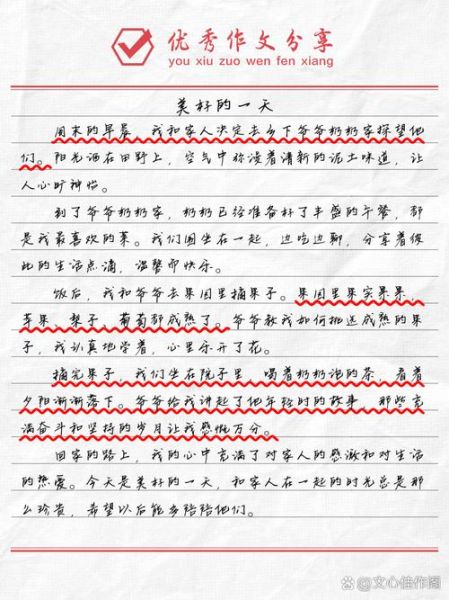 优秀作文分享
you xiu zuo wen fen xiang
美好的一天
周末的早晨，我和家人决定去乡下爷爷奶奶家探望他
们。阳光洒在田野上，空气中弥漫着清新的泥土味道，让
人心旷神怡。
到了爷爷奶奶家，奶奶已经准备好了丰盛的午餐，都
是我最喜欢的菜。我们围坐在一起，边吃边聊，分享着彼
此的生活点滴，温馨而快乐。
饭后，我和爷爷去果园里摘果子。果园里果实累累，
苹果、梨子、葡萄都成熟了。爷爷教我如何挑选成熟的果
子，我认真地学着，心里乐开了花。
摘完果子，我们坐在院子里，喝着奶奶泡的茶，看着
夕阳渐渐落下。爷爷给我讲起了他年轻时的故事，那些充
满奋斗和坚持的岁月让我感慨万分。
回家的路上，我的心中充满了对家人的感激和对生活
的热爱。今天是美好的一天，和家人在一起的时光总是那
么珍贵，希望以后能多陪陪他们。
文心佳作阁